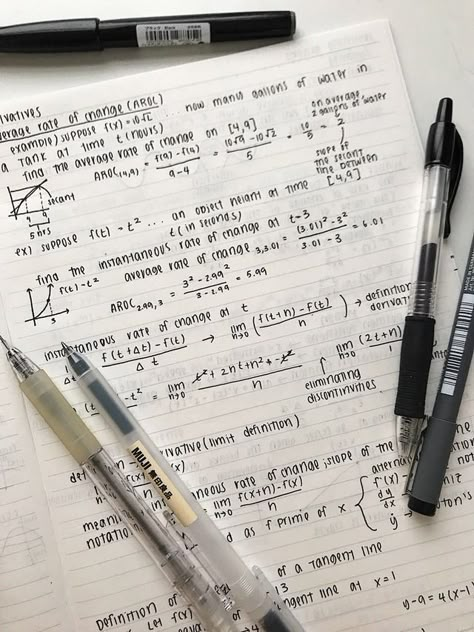 erivatives
average rate of change (AROC)
example) suppose f(x) = 10√t ... how many gallons of water in
a tank at time t (hours)
find the average rate of change on [4,9]
AROC(4,9) = f(9)-f(4) / 9-4 = 10√9-10√2 / 5 = 10/5 = 2
on average 2 gallons of water
slope of the secant line between [4,9]
secant
4 9
5 hrs
ex) suppose f(t) = t² ... an object height at time
t (in seconds)
find the instantaneous rate of change at t=3
average rate of change 3,3.01 = (3.01)²-3² / 3.01-3 = 6.01
f(t)-t²
3
AROC 2.99,3 = 3²-2.99² / 3-2.99 = 5.99
instantaneous rate of change at t
f(t+Δt)-f(t) / Δt → lim h→0 (f(t+h)-f(t) / h) → definition
derivat
-t² = lim h→0 t²+2th+h²-t² / h
lim h→0 (2t+h) / 1
eliminating
discontinuities
rivative (limit definition)
def
neous rate of change, slope of the
lim h→0 f(x+h)-f(x) / h
meanin
notatio
d as f prime of x
alternat
f'(x)
dy/dx
ẏ
MUJI 無印良品
of a tangent line
Definition of
let f(x)
ngent line at x=1
y-9=4(x-1)